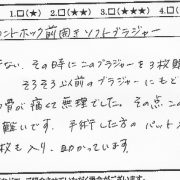 1.□(★) 2.□(★★) 3.□(★★★) 4.□(
ントホック前開きソフトブラジャー
ない。その時にこのブラジャーを3枚購
そろそろ以前のブラジャーにもど
骨が痛くて無理でした。その点この
難いです。手術した方のパット入
枚も入り、助かっています